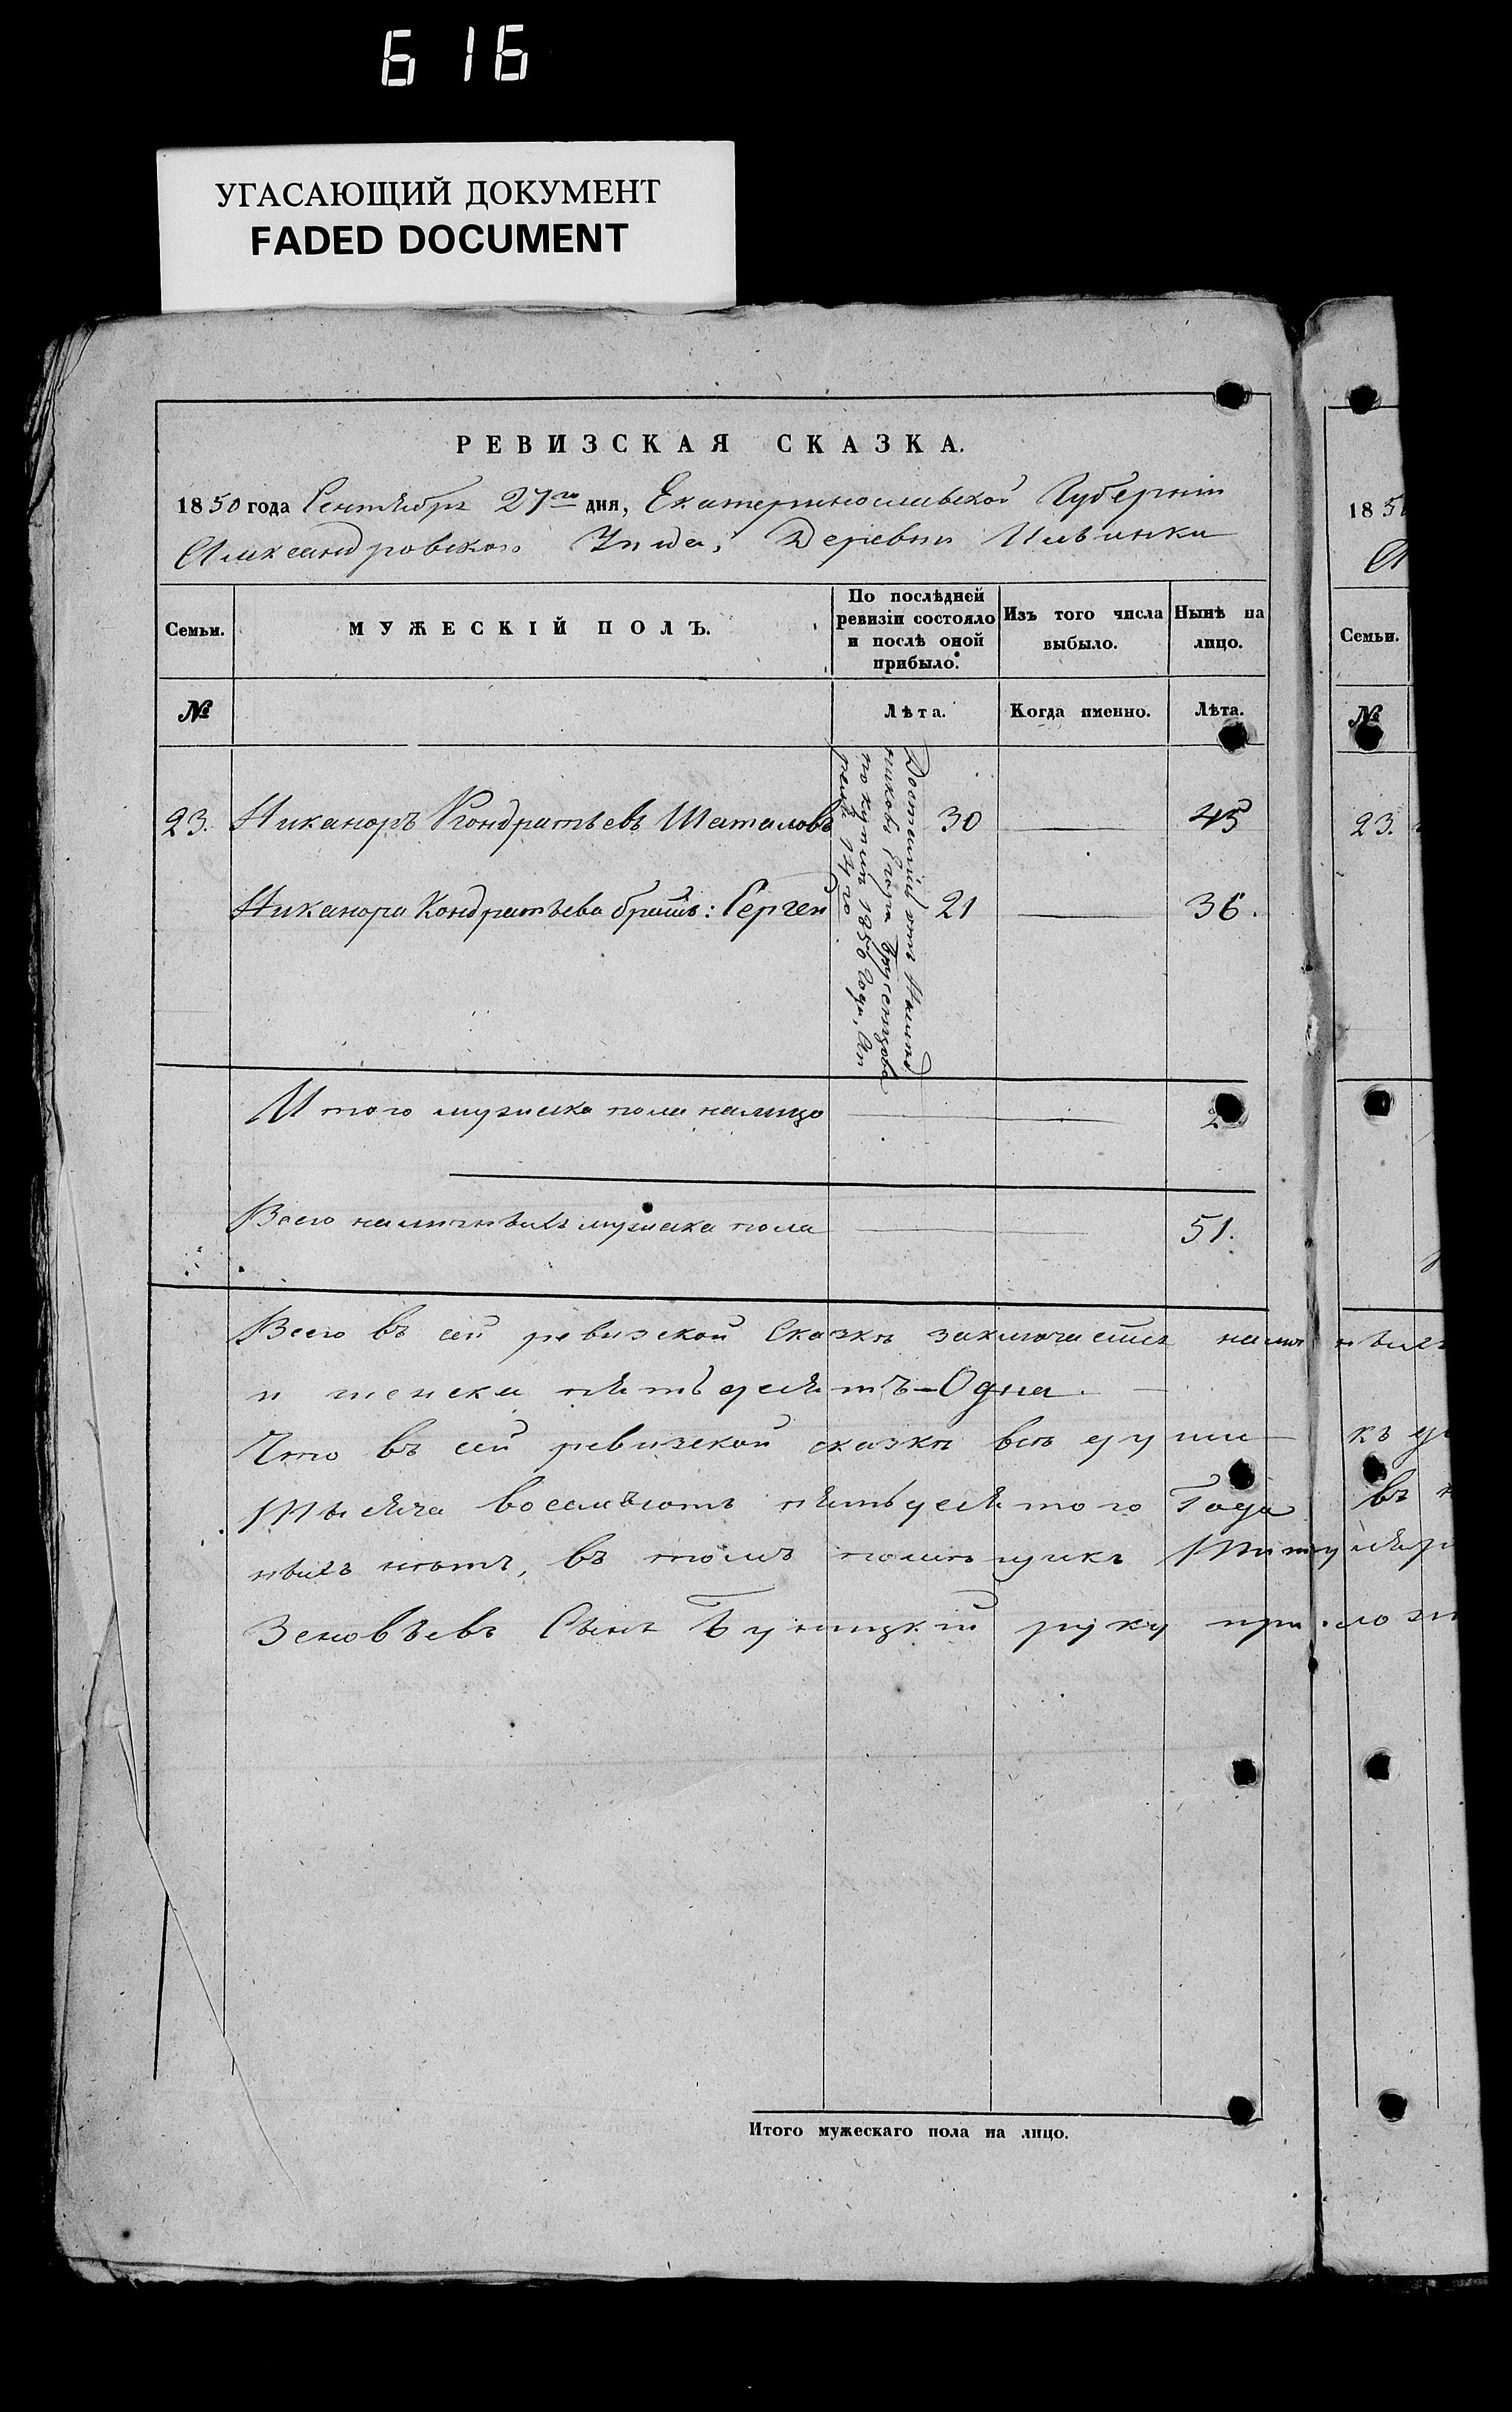 616
УГАСАЮЩИЙ ДОКУМЕНТ
FADED DOCUMENT
РЕВИЗСКАЯ СКАЗКА.
1850 года Сентября 27го дня, Екатеринославской Губерніи
Александровскаго Уѣзда, Деревни
Семьи.
МУЖЕСКІЙ ПОЛЪ.
По послѣдней ревизіи состояло и послѣ оной прибыло.
Изъ того числа выбыло.
Нынѣ на лицо.
№
Лѣта.
Когда именно.
Лѣта.
23. Никаноръ Кондратьевъ Шаталовъ 30 45
Никанора Кондратьева братъ: Сергей 21 36.
по купчей 1850 Году,
Итого мужеска пола налицо 2
Всего наличныхъ мужеска пола 51.
Всего въ сей ревизской Сказкѣ заключается налич ныхъ
и женска пятьдесятъ-Одна.
Что въ сей ревизской сказкѣ всѣ души
тысяча восемьсотъ пятьдесятого Года въ
ныхъ нѣтъ, въ томъ помѣщикъ Титуляр
Зеновьевъ Сынъ Буницкій руку приложи
Итого мужескаго пола на лицо.
185
Семьи.
№
23.